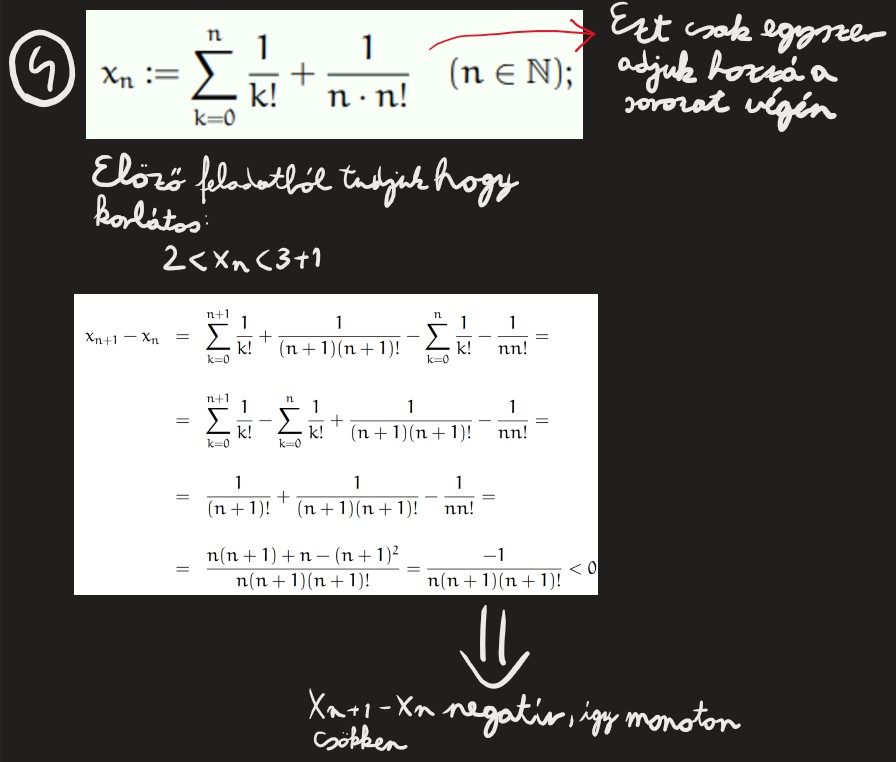 4
xₙ := ∑_{k=0}^{n} 1/k! + 1/(n · n!) (n ∈ ℕ);
Ezt csak egyszer
adjuk hozzá a
sorozat végén
Előző feladatból tudjuk hogy
korlátos:
2 < xₙ < 3+1
xₙ₊₁ − xₙ = ∑_{k=0}^{n+1} 1/k! + 1/((n + 1)(n + 1)!) − ∑_{k=0}^{n} 1/k! − 1/(nn!) =
= ∑_{k=0}^{n+1} 1/k! − ∑_{k=0}^{n} 1/k! + 1/((n + 1)(n + 1)!) − 1/(nn!) =
= 1/((n + 1)!) + 1/((n + 1)(n + 1)!) − 1/(nn!) =
= (n(n + 1) + n − (n + 1)²)/(n(n + 1)(n + 1)!) = −1/(n(n + 1)(n + 1)!) < 0
xₙ₊₁ − xₙ negatív, így monoton
csökken